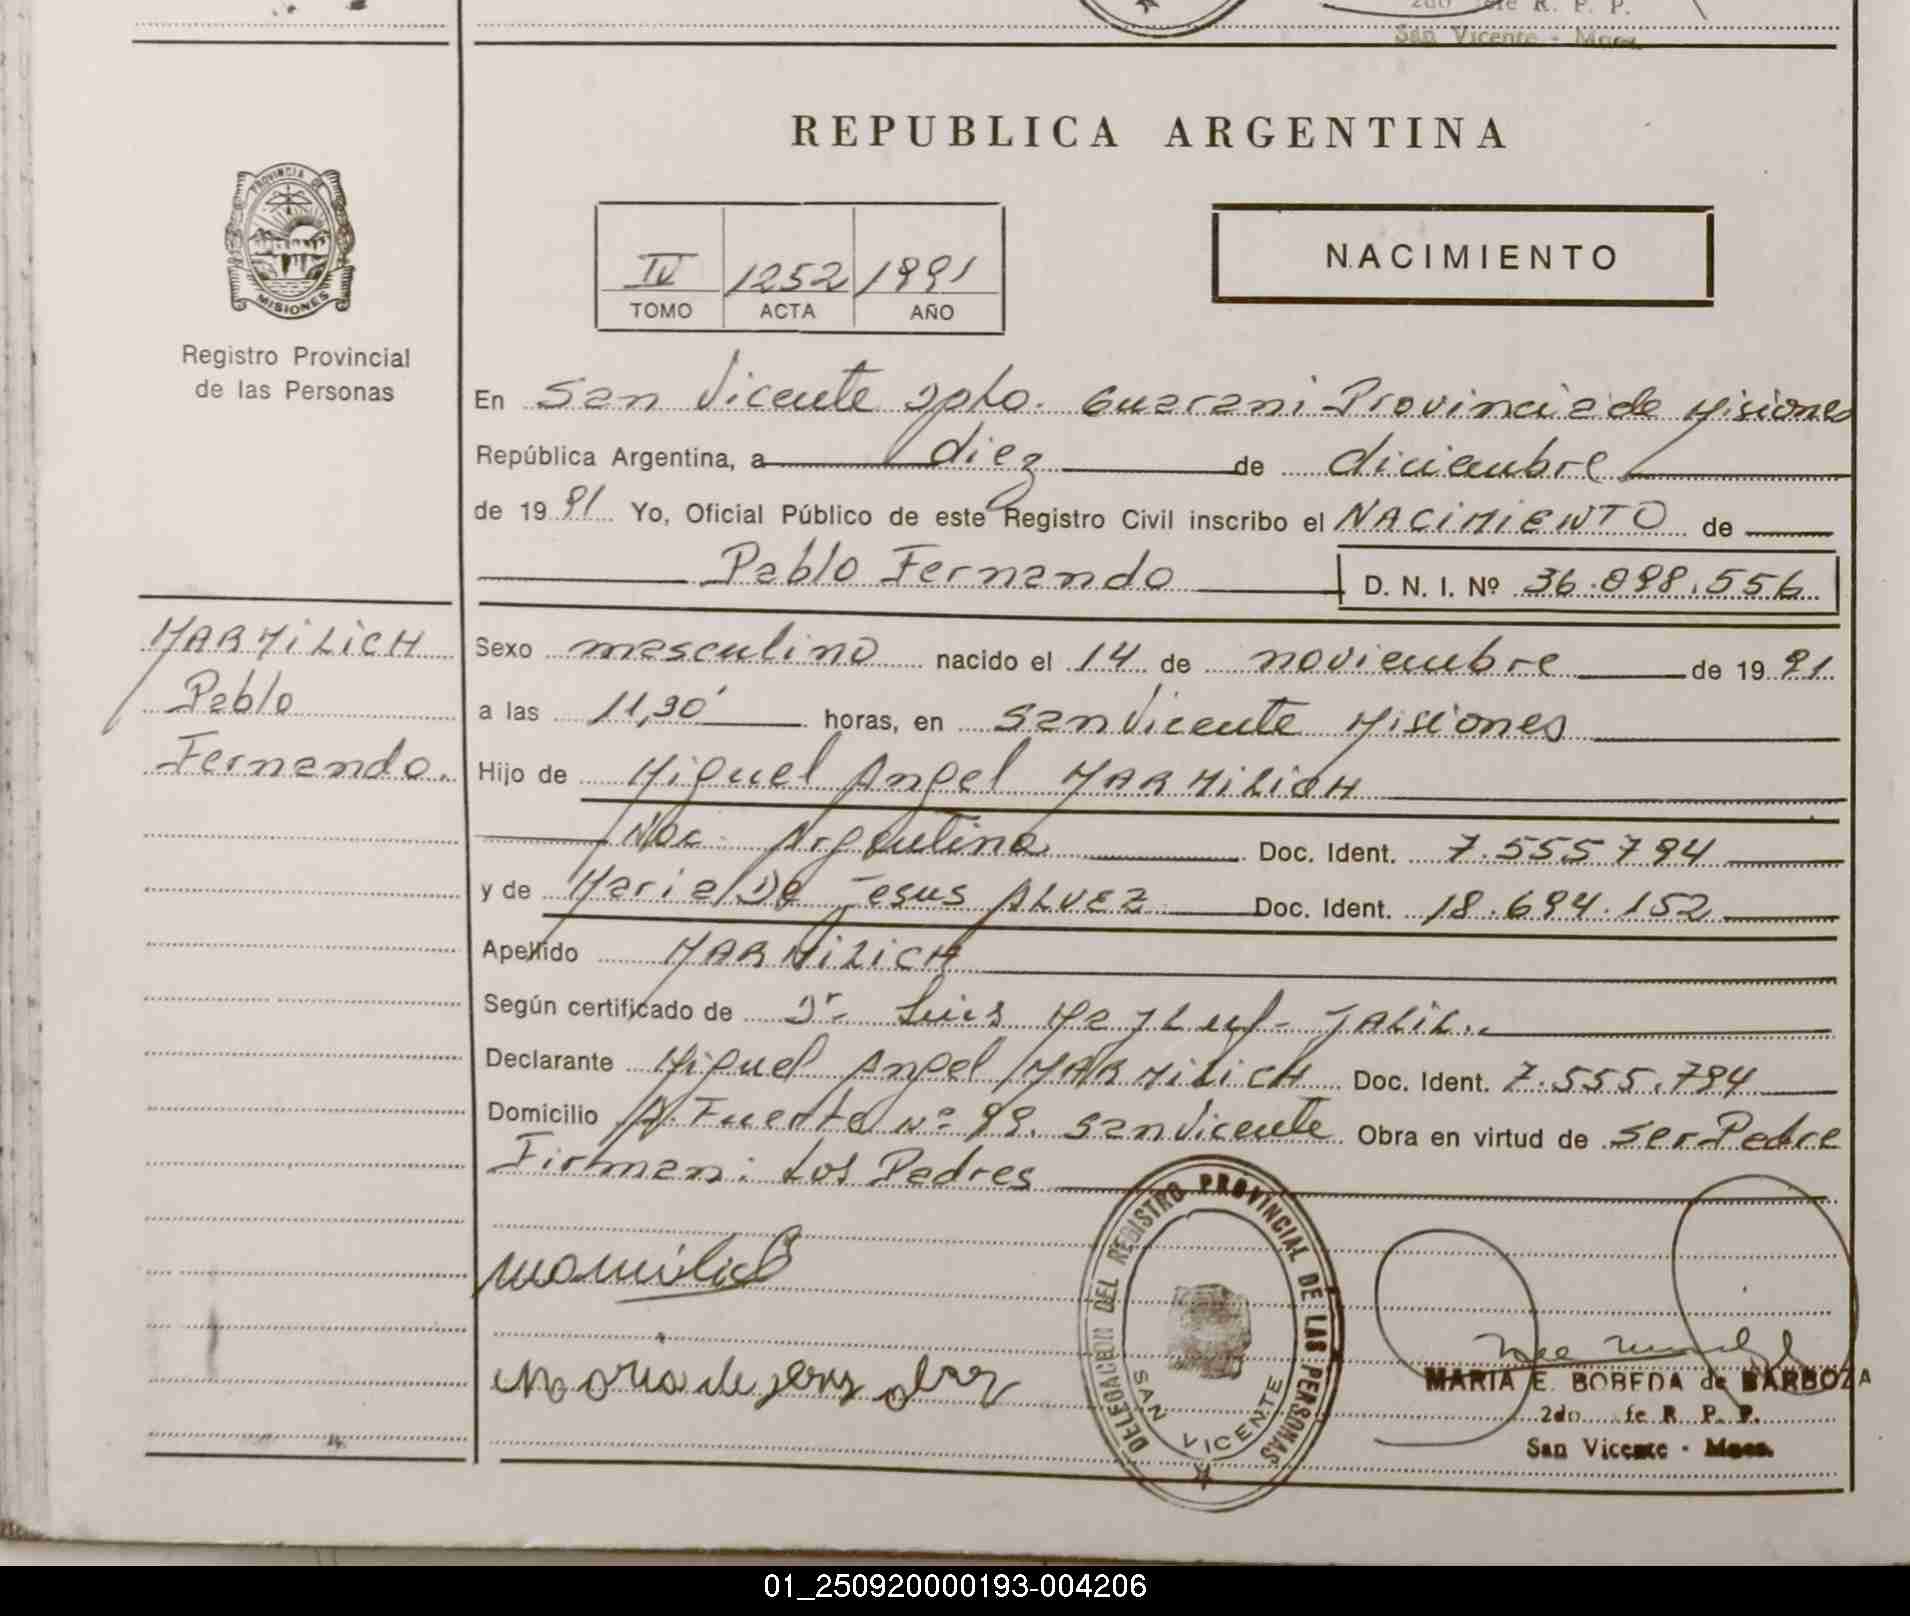 San Vicente - Mnes.
REPUBLICA ARGENTINA
PROVINCIA DE
MISIONES
Registro Provincial
de las Personas
IV 1252 1991
TOMO ACTA AÑO
NACIMIENTO
En San Vicente Dpto. Guarani Provincia de Misiones
República Argentina, a diez de diciembre
de 1991 Yo, Oficial Público de este Registro Civil inscribo el NACIMIENTO de
Pablo Fernando D. N. I. Nº 36.098.556
MARMILICH
Pablo
Fernando.
Sexo masculino nacido el 14 de noviembre de 1991
a las 11,30' horas, en San Vicente Misiones
Hijo de Miguel Angel MARMILICH
Nac. Argentina Doc. Ident. 7.555.794
y de Maria De Jesus ALVEZ Doc. Ident. 18.694.152
Apellido MARMILICH
Según certificado de Dr. Luis JALIL.
Declarante Miguel Angel MARMILICH Doc. Ident. 7.555.794
Domicilio A. Fuerte Nº 99. San Vicente Obra en virtud de ser Padre
Firman: Los Padres
Maria de jesus alvez
DELEGACION DEL REGISTRO PROVINCIAL DE LAS PERSONAS
SAN VICENTE
MARIA E. BOBEDA de BARBOZA
2do Jefe R. P. P.
San Vicente - Mnes.
01_250920000193-004206